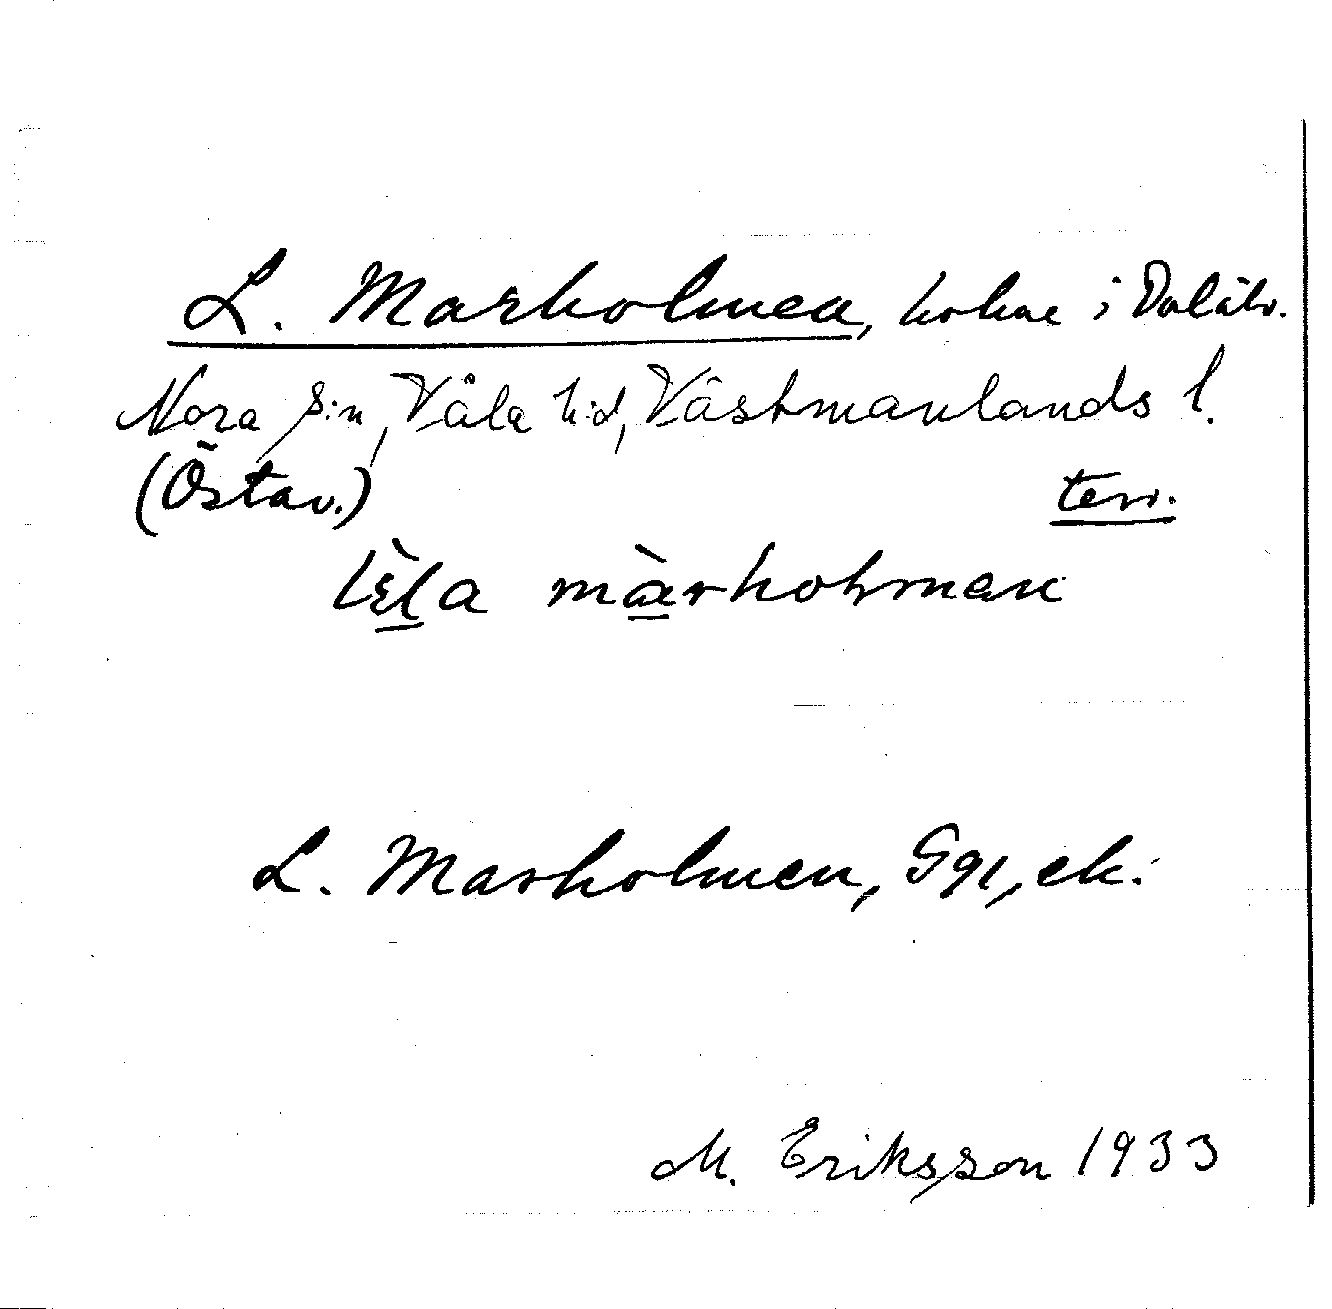 L. Marholmen, holme i Dalälv.
Nora s:n, Våla h:d, Västmanlands l.
(Östav.) terr.
lɛ̀la màrholman
L. Marholmen, Ggl, ek.
M. Eriksson 1933